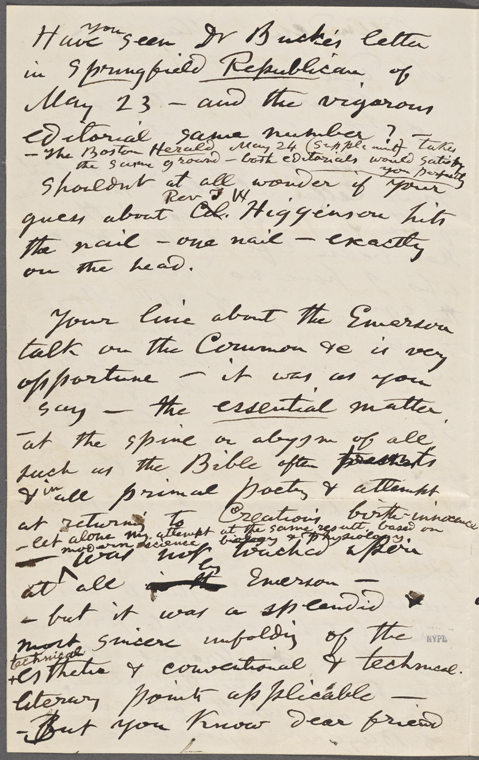 Have you seen Dr Bucke's letter
in Springfield Republican of
May 23 – and the vigorous
editorial same number? –
– The Boston Herald May 24 (supplement) takes
the same ground – both editorials would satisfy
you perfectly
Shouldnt at all wonder if your
guess about Rev T W
Col. Higginson hits
the nail – one nail – exactly
on the head.
Your line about the Emerson
talk on the Common &c is very
opportune – it was as you
say – the essential matter,
at the spine or abysm of all,
such as the Bible often presents
& in all primal poetry & attempt
at returning to Creation's birth-innocence
– let alone my attempt at the same result, based on
modern science biology & physiology
– was not touched upon
at all by Emerson –
– but it was a splendid &
most sincere unfolding of the
technical
esthetic & conventional & technical
literary points applicable –
– But you know dear friend
NYPL